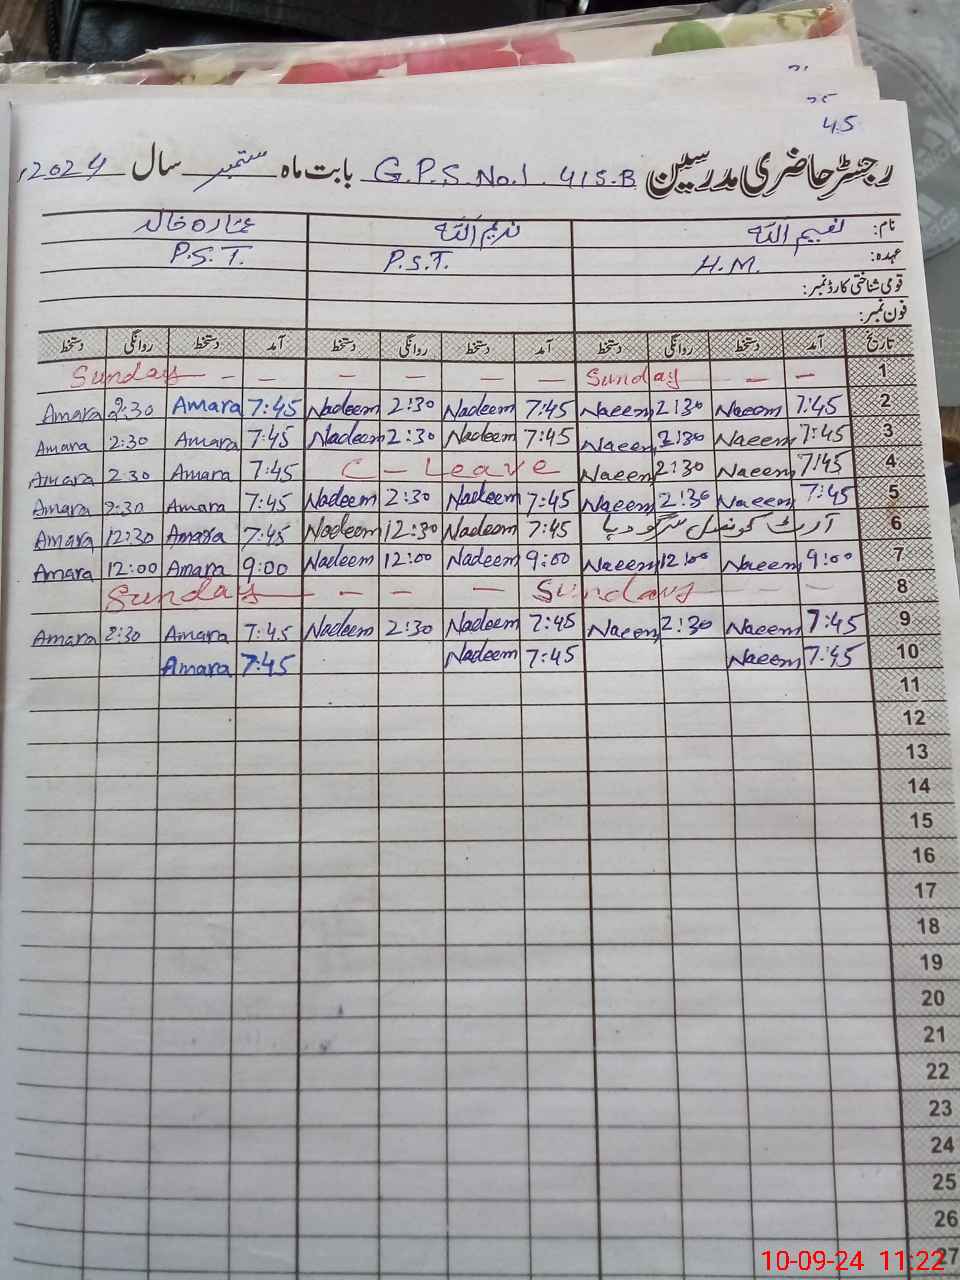 25
45
رجسٹر حاضری مدرسین G.P.S No.1 . 415.B بابت ماہ ستمبر سال 2024ء
نام: نعیم اللہ ندیم اللہ عمارہ خالد
عہدہ: H.M. P.S.T. P.S.T.
قومی شناختی کارڈ نمبر:
فون نمبر:
تاریخ آمد دستخط روانگی دستخط آمد دستخط روانگی دستخط آمد دستخط روانگی دستخط
1 Sunday – – – – – – Sunday – – –
2 7:45 Naeem 2:30 Naeem 7:45 Nadeem 2:30 Nadeem 7:45 Amara 2:30 Amara
3 7:45 Naeem 2:30 Naeem 7:45 Nadeem 2:30 Nadeem 7:45 Amara 2:30 Amara
4 7:45 Naeem 2:30 Naeem C - Leave 7:45 Amara 2:30 Amara
5 7:45 Naeem 2:30 Naeem 7:45 Nadeem 2:30 Nadeem 7:45 Amara 2:30 Amara
6 آرٹ کونسل سرگودہا 7:45 Nadeem 12:30 Nadeem 7:45 Amara 12:30 Amara
7 9:00 Naeem 12:00 Naeem 9:00 Nadeem 12:00 Nadeem 9:00 Amara 12:00 Amara
8 Sunday – – – – Sunday – – –
9 7:45 Naeem 2:30 Naeem 7:45 Nadeem 2:30 Nadeem 7:45 Amara 2:30 Amara
10 7:45 Naeem 7:45 Nadeem 7:45 Amara
11
12
13
14
15
16
17
18
19
20
21
22
23
24
25
26
27
10-09-24 11:22